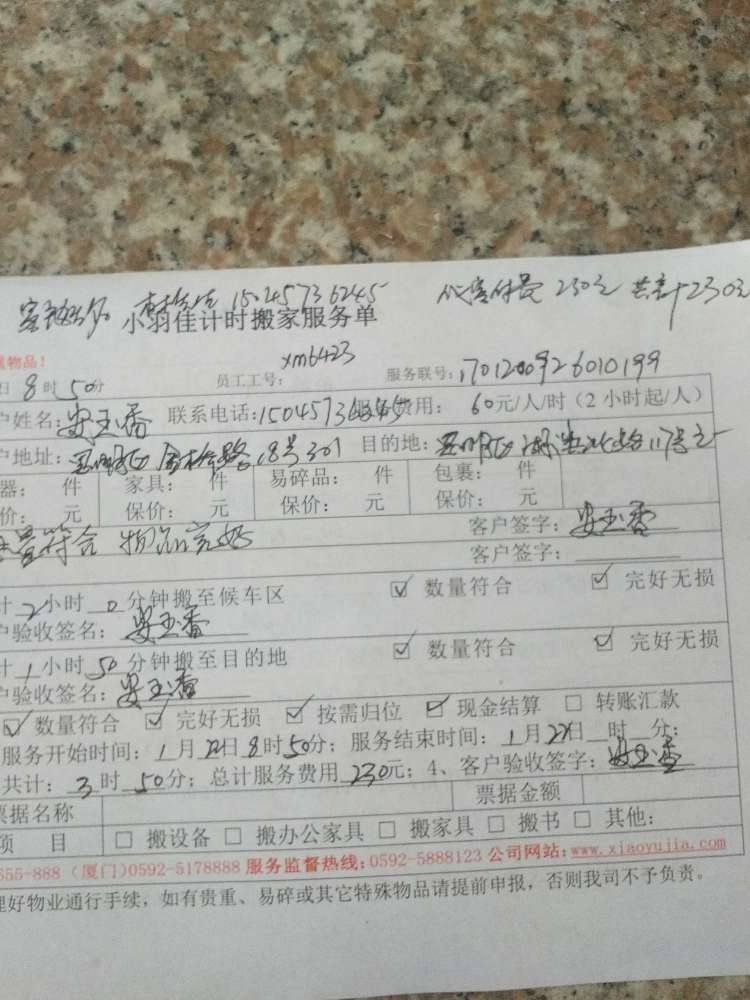 15045736245 代客付费 230元 共计230元
小羽佳计时搬家服务单
物品!
xm6423
日 8时50分 员工工号: 服务联号:
户姓名:安玉香 联系电话:1504573 服务费用: 60元/人/时(2小时起/人)
户地址: 18号301 目的地:
器: 件 家具: 件 易碎品: 件 包裹: 件
价: 元 保价: 元 保价: 元 保价: 元
符合 物品完好 客户签字:安玉香
客户签字:
计2小时0分钟搬至候车区 ☑ 数量符合 ☑ 完好无损
户验收签名:安玉香
计1小时50分钟搬至目的地 ☑ 数量符合 ☑ 完好无损
户验收签名:安玉香
☑ 数量符合 ☑ 完好无损 ☑ 按需归位 ☑ 现金结算 □ 转账汇款
服务开始时间:1月22日8时50分;服务结束时间:1月22日 时 分;
共计:3时50分;总计服务费用230元;4、客户验收签字:安玉香
票据名称 票据金额
项 目 □ 搬设备 □ 搬办公家具 □ 搬家具 □ 搬书 □ 其他:
655-888 (厦门)0592-5178888 服务监督热线:0592-5888123 公司网站:www.xiaoyujia.com
理好物业通行手续,如有贵重、易碎或其它特殊物品请提前申报,否则我司不予负责。